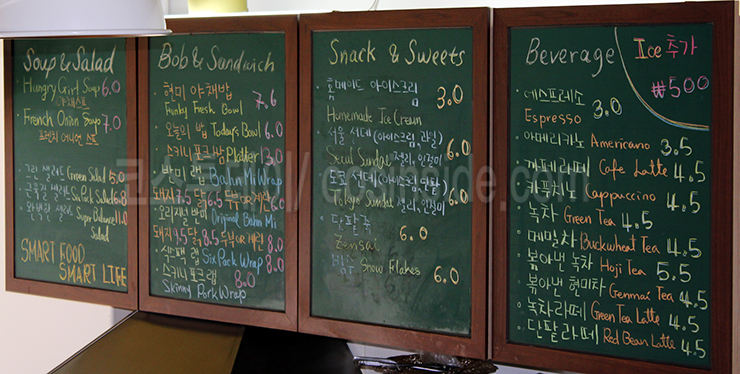 Soup & Salad
Hungry Girl Soup 6.0
야채스프
French Onion Soup 7.0
프렌치 어니언 스프
그린 샐러드 Green Salad 5.0
Six Pack Salad
Super Balance 11.0
Salad
SMART FOOD
SMART LIFE
Bob & Sandwich
현미 야채밥
Funky Fresh Bowl 7.6
오늘의 밥 Today's Bowl 6.0
Platter 3.0
반미 랩 Bahn Mi Wrap
두부 or 계란 6.0
오리지날 반미 Original Bahn Mi
돼지 7.5 닭 8.5 두부 or 계란 8.0
식스팩 랩 Six Pack Wrap 8.0
스키니 포크 랩 8.0
Skinny Pork Wrap
Snack & Sweets
홈메이드 아이스크림 3.0
Homemade Ice Cream
서울 선데 (아이스크림, 6.0
Seoul Sundae 젤리, 인절미)
도쿄 선데 (아이스크림, 6.0
Tokyo Sundae 젤리, 인절미)
단팥죽 6.0
Zensai
빙수 Snow Flakes 6.0
Beverage
Ice 추가
₩500
에스프레소 3.0
Espresso
아메리카노 Americano 3.5
까페라떼 Cafe Latte 4.5
카푸치노 Cappuccino 4.5
녹차 Green Tea 4.5
메밀차 Buckwheat Tea 4.5
볶아낸 녹차 Hoji Tea 5.5
볶아낸 현미차 Genmai Tea 4.5
녹차라떼 Green Tea Latte 4.5
단팥라떼 Red Bean Latte 4.5